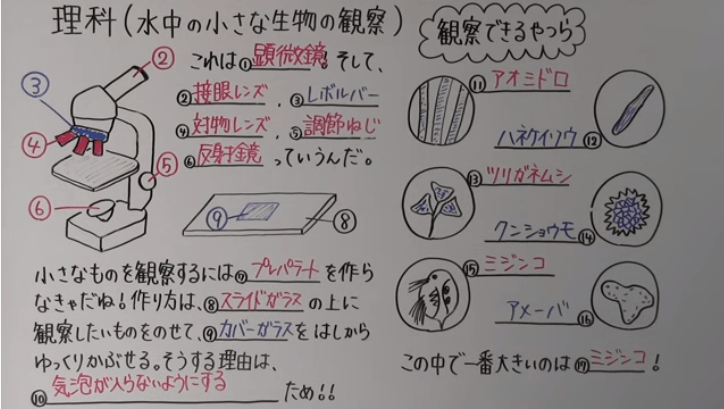 理科(水中の小さな生物の観察)
これは①顕微鏡!そして、
②接眼レンズ、③レボルバー
④対物レンズ、⑤調節ねじ
⑥反射鏡っていうんだ。
②
③
④
⑤
⑥
⑨
⑧
小さなものを観察するには⑦プレパラートを作ら
なきゃだね!作り方は、⑧スライドガラスの上に
観察したいものをのせて、⑨カバーガラスをはしから
ゆっくりかぶせる。そうする理由は、
⑩気泡が入らないようにするため!!
観察できるやつら
⑪アオミドロ
ハネケイソウ⑫
⑬ツリガネムシ
クンショウモ⑭
⑮ミジンコ
アメーバ⑯
この中で一番大きいのは⑰ミジンコ!